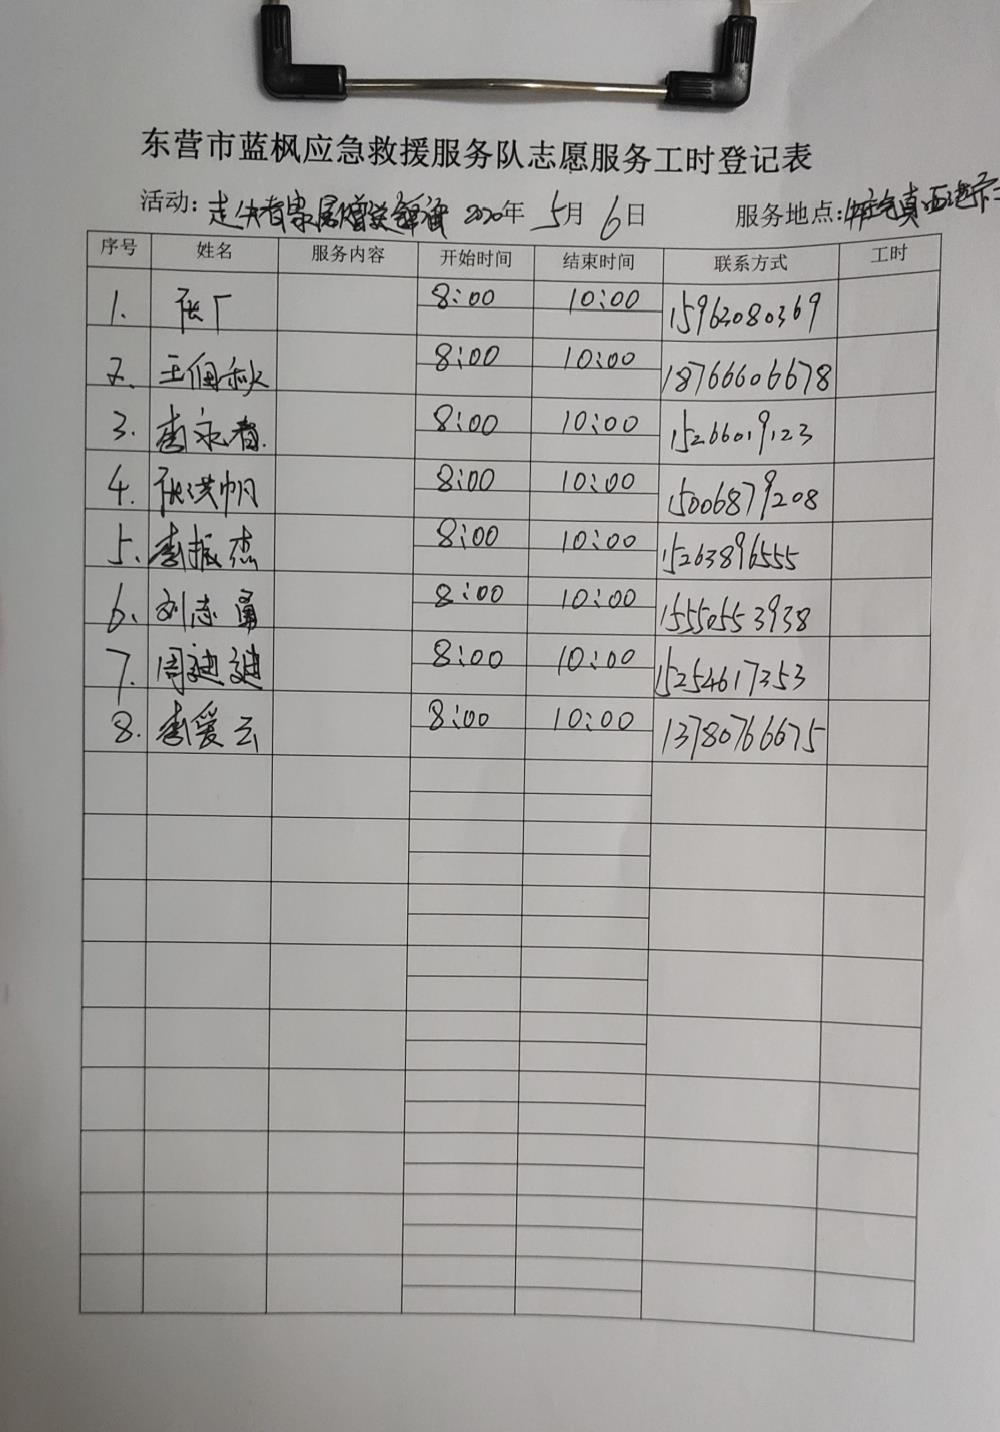 东营市蓝枫应急救援服务队志愿服务工时登记表
活动: 走失者家属赠送锦旗 2020年 5月 6日 服务地点:
序号 姓名 服务内容 开始时间 结束时间 联系方式 工时
1. 张厂 8:00 10:00 15963080369
2. 王佃秋 8:00 10:00 18766606678
3. 李永春 8:00 10:00 15266019123
4. 张洪帅 8:00 10:00 15006879208
5. 李振杰 8:00 10:00 15263896555
6. 刘志勇 8:00 10:00 15550553938
7. 周迪迪 8:00 10:00 15254617353
8. 李爱云 8:00 10:00 13780766675